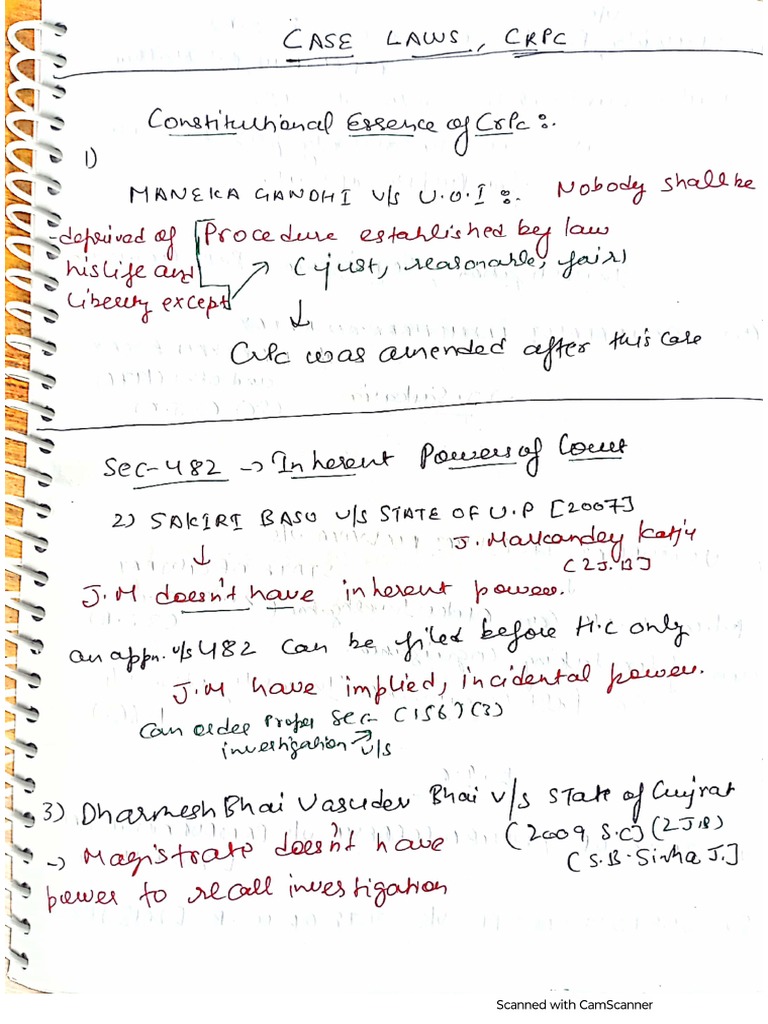 CASE LAWS, CRPC
Constitutional Essence of CrPc :-
1)
MANEKA GANDHI V/S U.O.I :- Nobody shall be
-deprived of [Procedure established by law
his life and (just, reasonable, fair)
Liberty except
↓
CrPc was amended after this case
Sec-482 -> Inherent Powers of Court
2) SAKIRI BASU V/S STATE OF U.P [2007]
J. Markandey Katju
(2J.B]
↓
J.M doesn't have inherent power.
an appn. u/s 482 can be filed before H.C only
J.M have implied, incidental power.
Can order Proper Sec (156)(3)
investigation u/s
3) Dharmesh Bhai Vasudev Bhai v/s State of Gujrat
(2009, S.C] (2J.B)
-> Magistrate doesn't have (S.B. Sinha J.]
power to recall investigation
Scanned with CamScanner